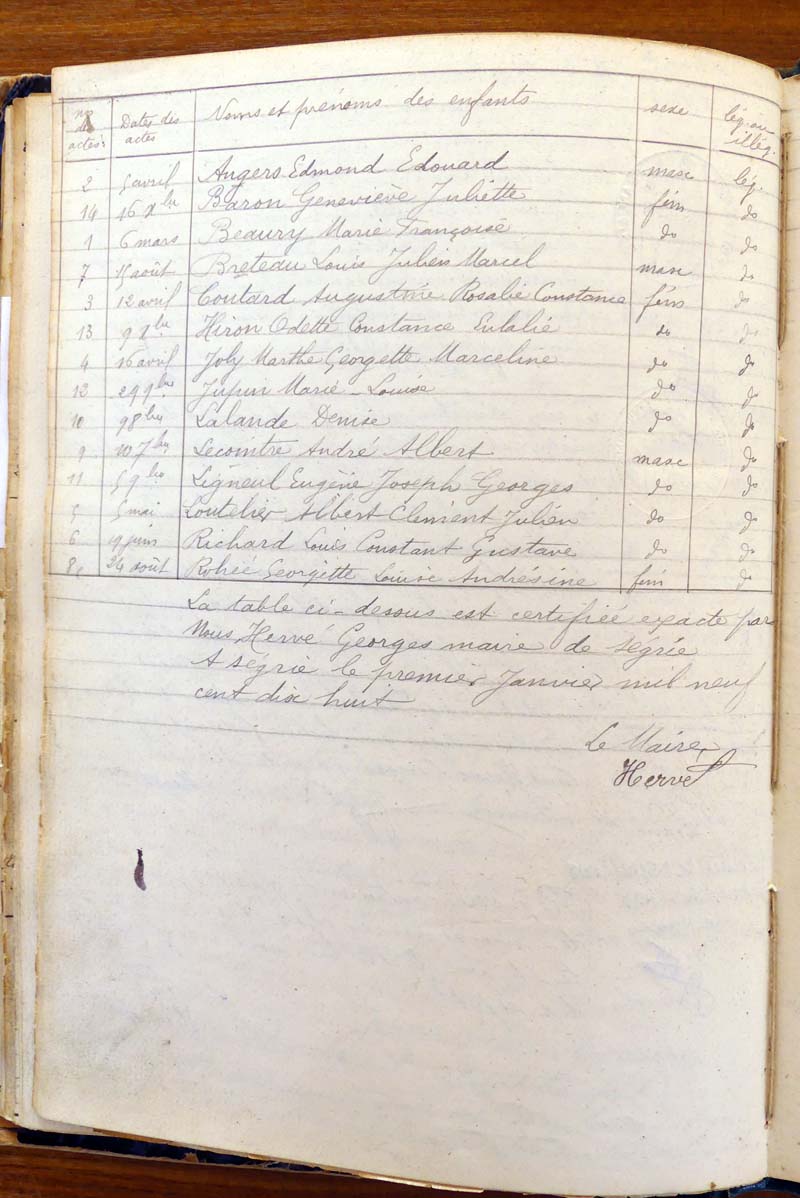 nos des actes Dates des actes Noms et prénoms des enfants sexe lég. ou illég.
2 5 avril Angers Edmond Edouard masc lég.
14 16 Xbre Baron Geneviève Juliette fém do
1 6 mars Beaury Marie Françoise do do
7 5 août Breteau Louis Julien Marcel masc do
3 12 avril Coutard Augustine Rosalie Constance fém do
13 9 Xbre Hiron Odette Constance Eulalie do do
4 16 avril Joly Marthe Georgette Marceline do do
12 29 9bre Jupin Marie-Louise do do
10 9 8bre Lalande Denise do do
9 7bre Lecomtre André Albert masc do
11 5 9bre Ligneul Eugène Joseph Georges do do
5 5 mai Loutelier Albert Clément Julien do do
6 19 juin Richard Louis Constant Gustave do do
8 24 août Rohée Georgette Louise Andrésine fém do
La table ci-dessus est certifiée exacte par
Nous Hervé Georges maire de Ségrie
A ségrie le premier Janvier mil neuf
cent dix huit
Le Maire
Hervé